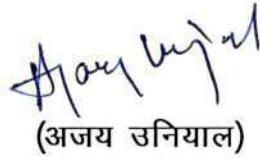 Ajay Uniyal
(अजय उनियाल)